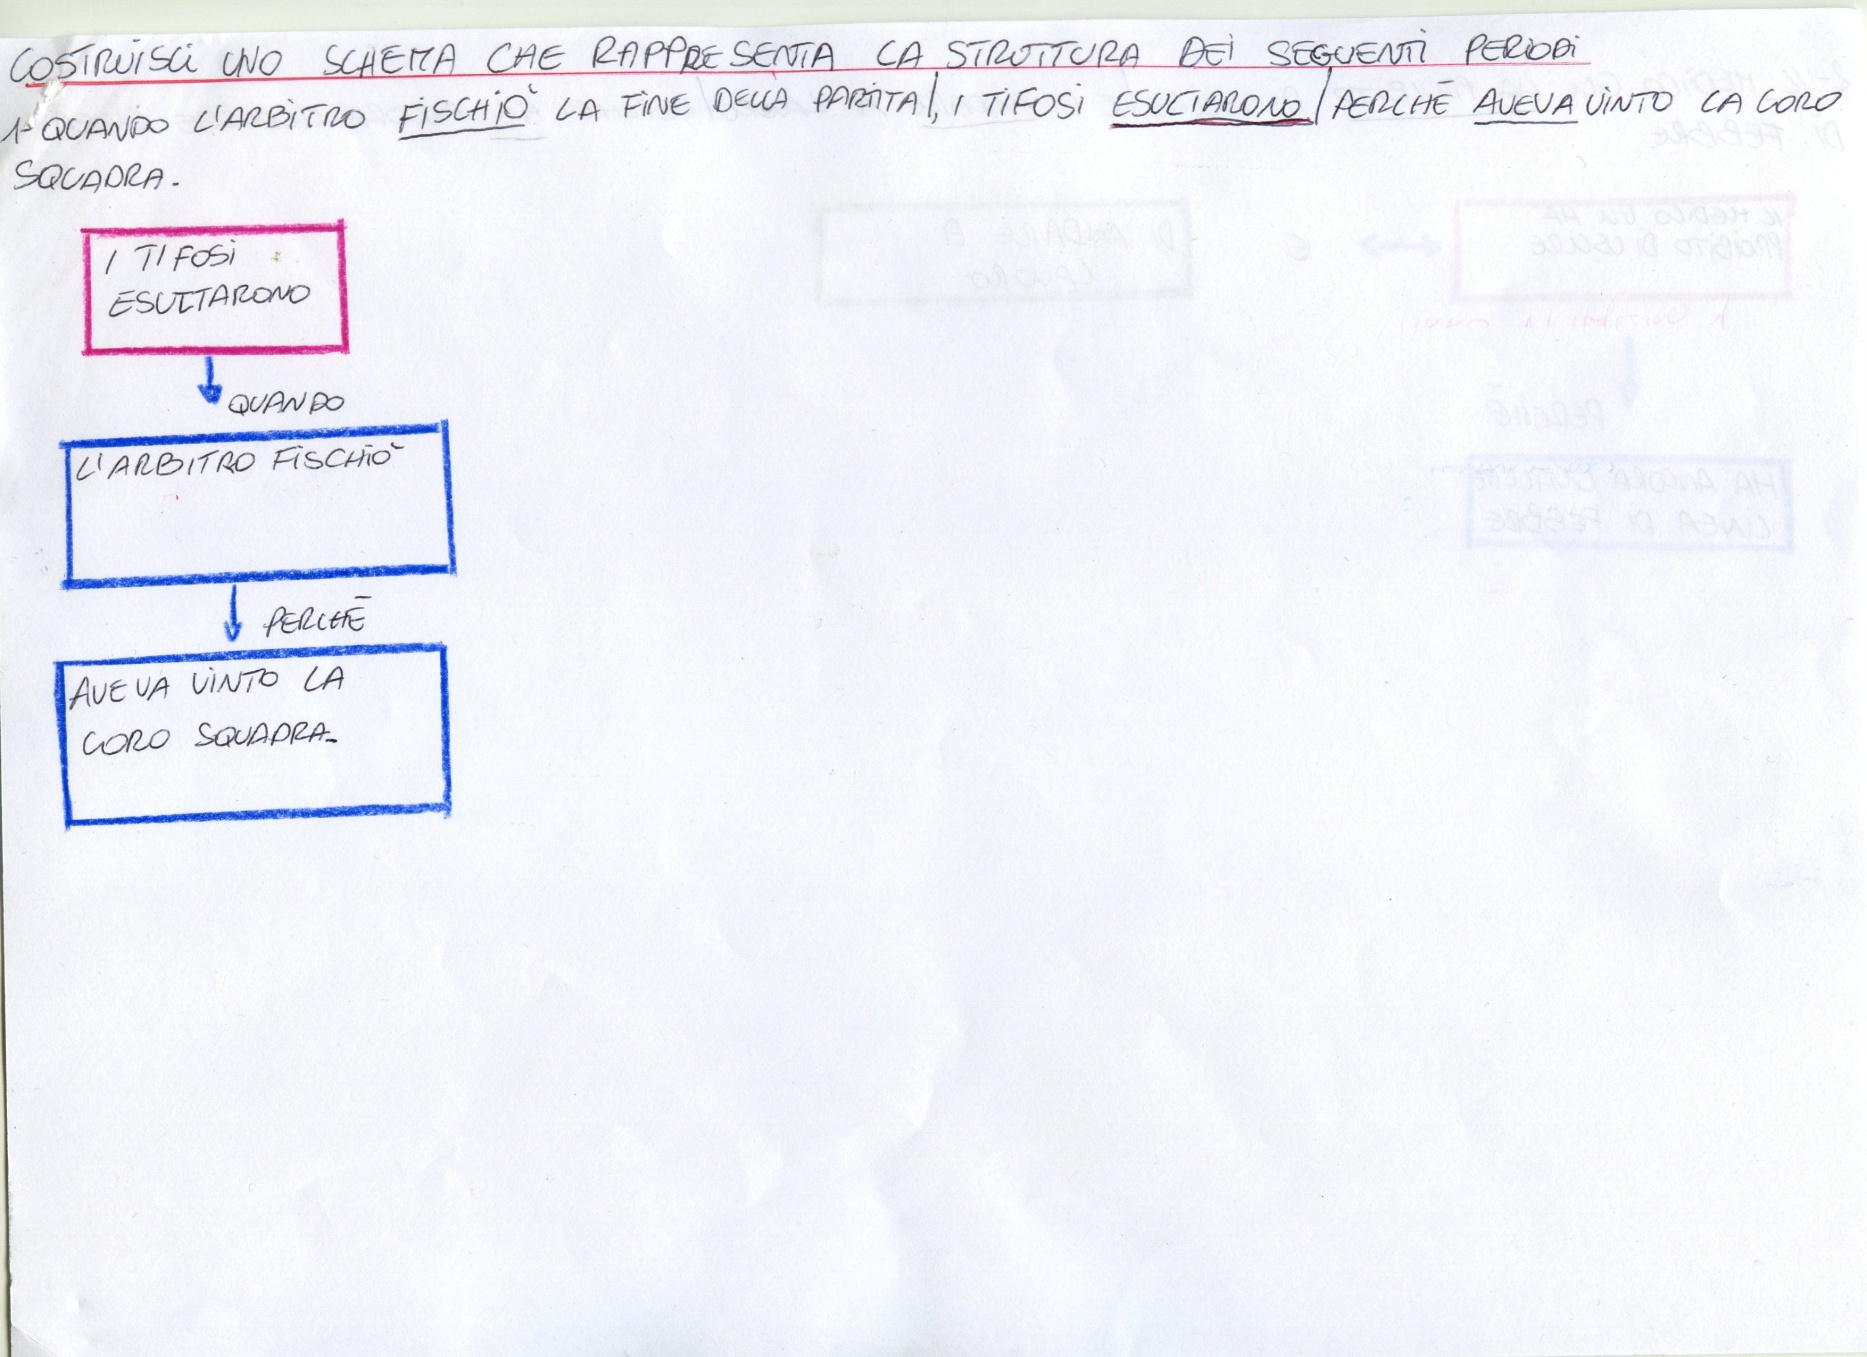 COSTRUISCI UNO SCHEMA CHE RAPPRESENTA LA STRUTTURA DEI SEGUENTI PERIODI
1- QUANDO L'ARBITRO FISCHIÒ LA FINE DELLA PARTITA/, I TIFOSI ESULTARONO/PERCHÉ AVEVA VINTO LA LORO
SQUADRA.
I TIFOSI
ESULTARONO
QUANDO
L'ARBITRO FISCHIÒ
PERCHÉ
AVEVA VINTO LA
LORO SQUADRA.